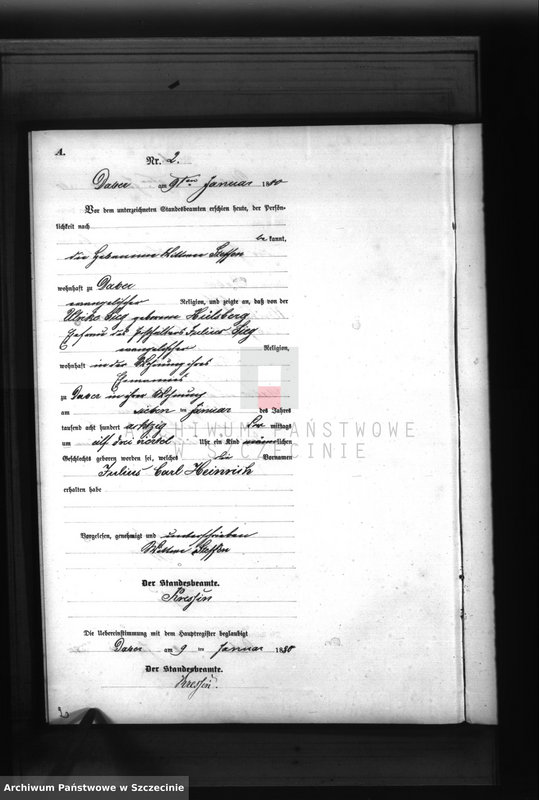 A.
Nr. 2.
Daber am 9ten Januar 1880
Vor dem unterzeichneten Standesbeamten erschien heute, der Persön-
lichkeit nach
be kannt,
die Hebamme Wittwe Steffen
wohnhaft zu Daber
evangelischer Religion, und zeigte an, daß von der
Ulrike Sieg geborene Hülsberg
Ehefrau des Julius Sieg
evangelischer Religion,
wohnhaft in der Wohnung ihres
Ehemannes
zu Daber in ihrer Wohnung
am sieben ten Januar des Jahres
tausend acht hundert achtzig Vor mittags
um elf drei viertel Uhr ein Kind männlichen
Geschlechts geboren worden sei, welches die Vornamen
Julius Carl Heinrich
erhalten habe
Vorgelesen, genehmigt und unterschrieben
Wittwe Steffen
Der Standesbeamte.
Kressin
Die Uebereinstimmung mit dem Hauptregister beglaubigt
Daber am 9 ten Januar 1880
Der Standesbeamte.
Kressin.
2
ARCHIWUM PAŃSTWOWE
W SZCZECINIE
Archiwum Państwowe w Szczecinie